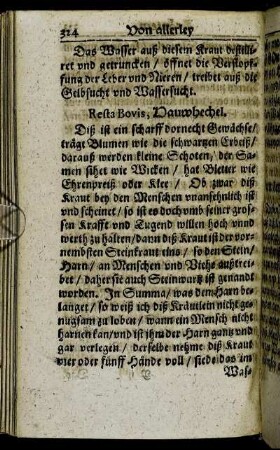 324 Von allerley
Das Wasser auß diesem Kraut destilli-
ret vnd getruncken / öffnet die Verstopf-
fung der Leber vnd Nieren / treibet auß die
Gelbsucht vnd Wassersucht.
Resta Bovis, Hauwhechel.
Diß ist ein scharff dornecht Gewächse/
trägt Blumen wie die schwartzen Erbeiß/
darauß werden kleine Schoten / der Sa-
men sihet wie Wicken / hat Bletter wie
Ehrenpreiß oder Klee / Ob zwar diß
Kraut bey den Menschen vnansehnlich ist
vnd scheinet / so ist es doch vmb seiner gros-
sen Krafft vnd Tugend willen hoch vnnd
werth zu halten / dann diß Kraut ist der vor-
nembsten Steinkraut eins / so den Stein/
Harn / an Menschen vnd Viehe außtrei-
bet / daher sie auch Steinwurtz ist genandt
worden. In Summa / was den Harn be-
langet / so weiß ich diß Kräutlein nicht ge-
nugsam zu loben / wann ein Mensch nicht
harnen kan / vnd ist jhm der Harn gantz vnd
gar verlegen / derselbe nehme diß Kraut
vier oder fünff Hände voll / siede das im
Was-